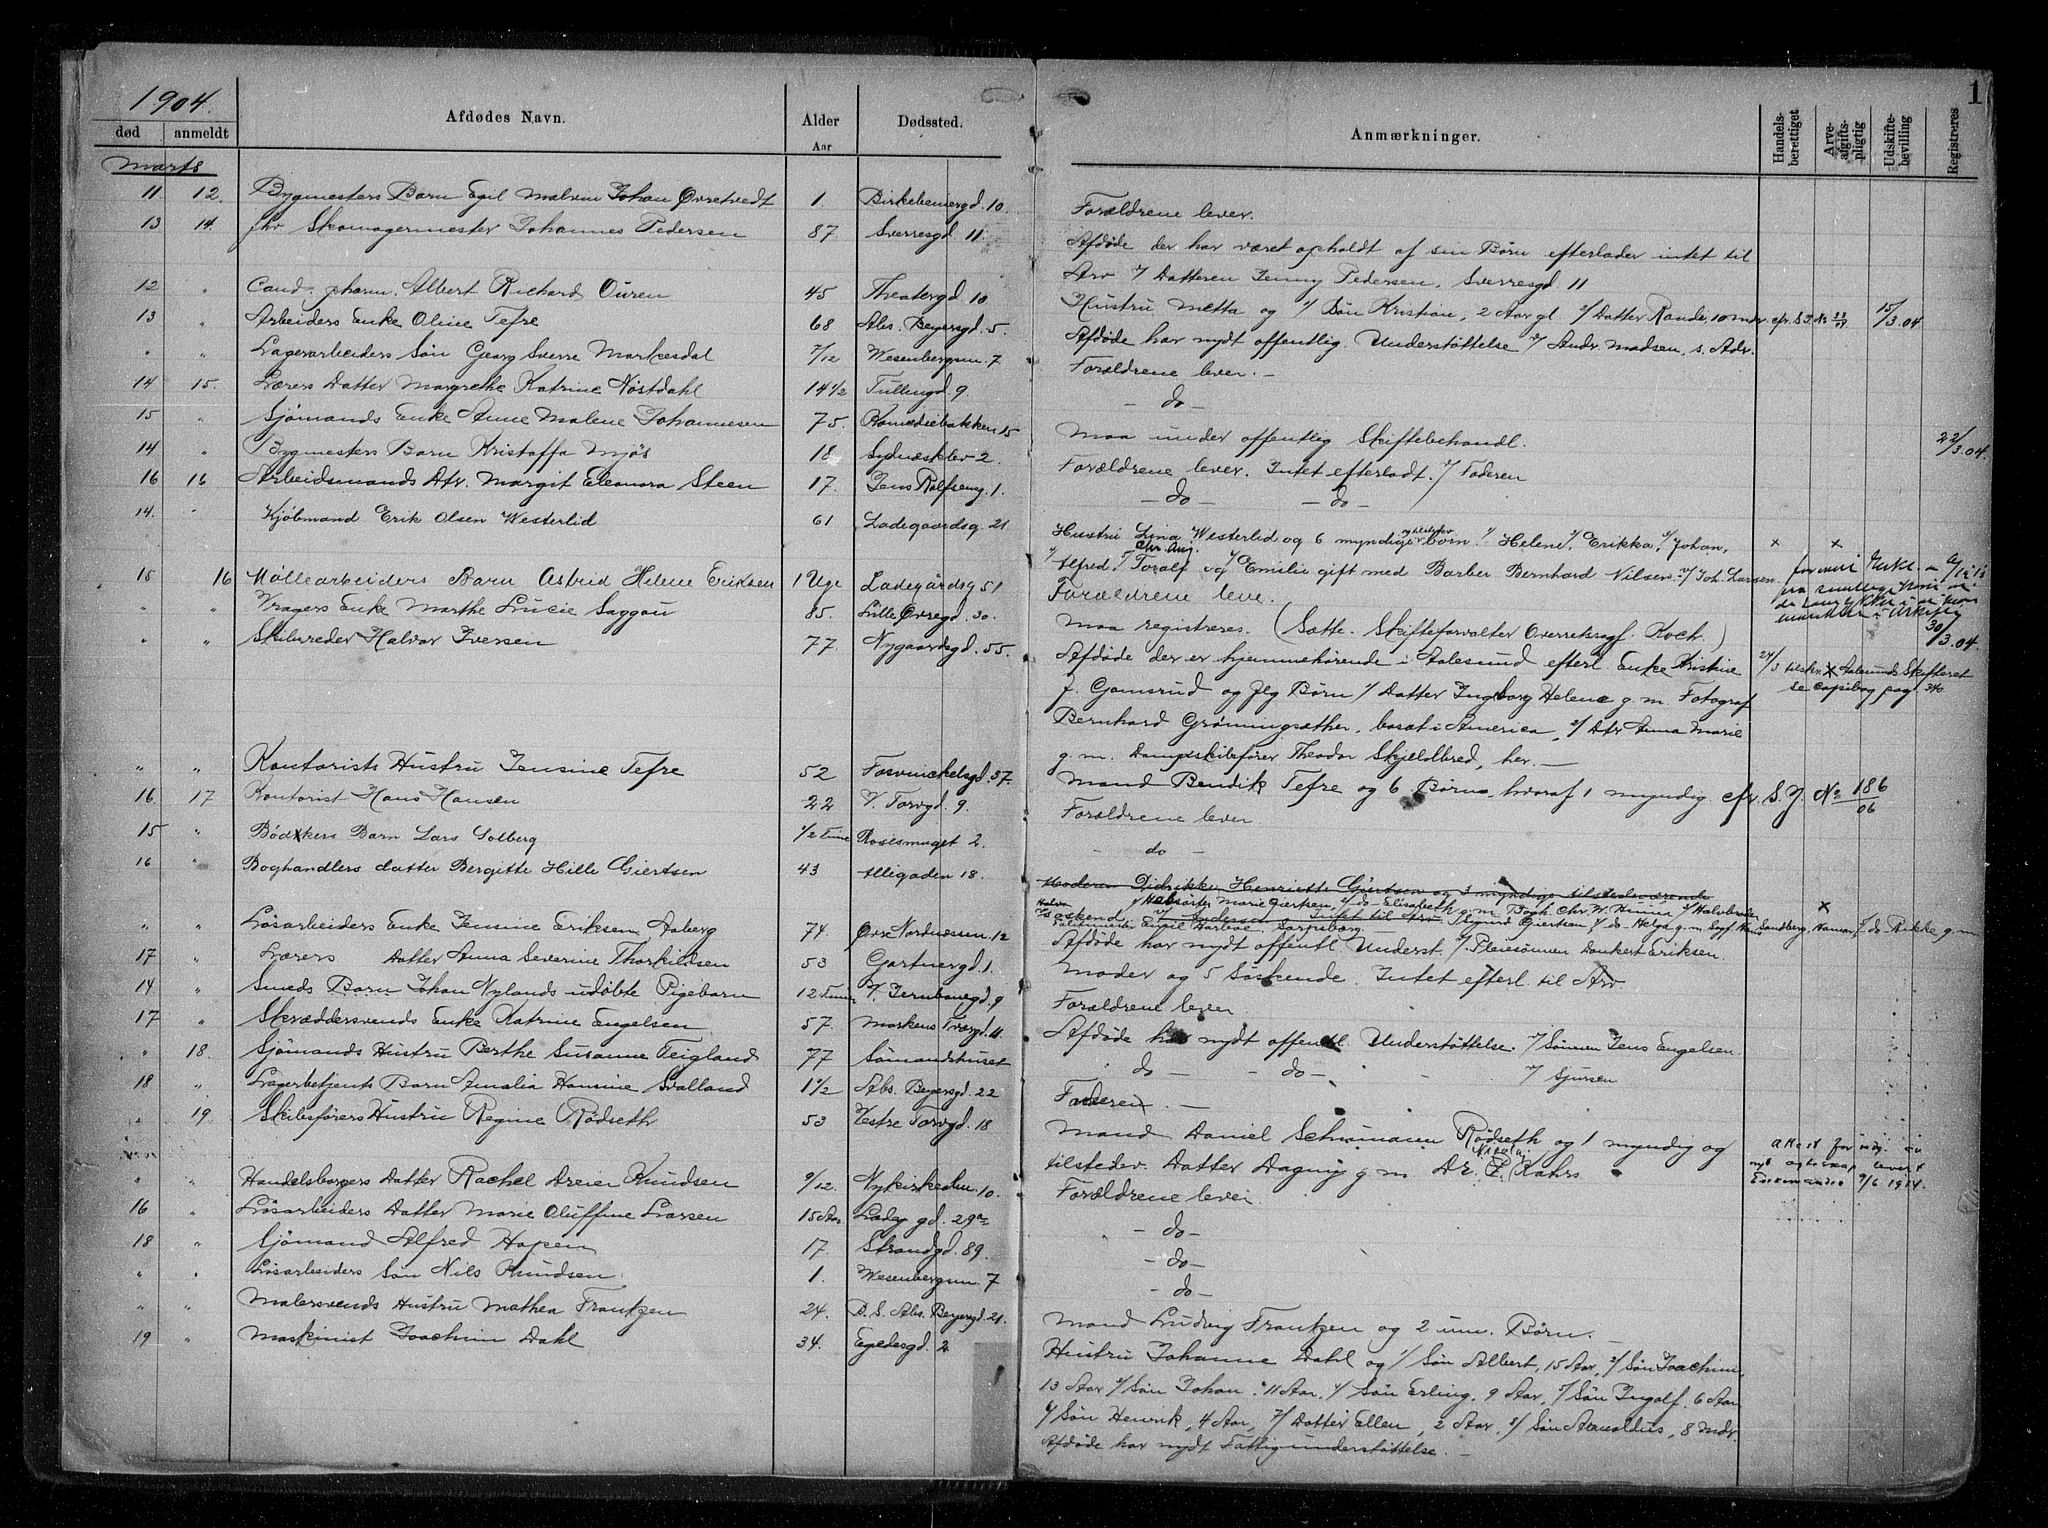 1904.
død anmeldt Afdødes Navn. Alder Aar Dødssted.
Marts
11 12. Bygmesters Barn Egil Malvin Johan Øvretvedt 1 Birkebeinergd. 10.
13 14. fhv Skomagermester Johannes Pedersen 87. Sverresgd. 11.
12 " Cand. pharm. Albert Richard Ouren 45 Theatergd. 10
13 " Arbeiders Enke Oline Tefre 68 Abs. Beyersgd. 5.
" " Lagerarbeiders Søn Georg Sverre Markesdal 7/12 Wesenbergsm. 7
14 15. Lærers Datter Margrethe Katrine Nøstdahl 14 1/2 Tullingd. 9.
15 " Sjømands Enke Anne Malene Johannesen 75. Komediebakken 15
14 " Bygmesters Barn Kristoffa Mjøs 18 Sydneskl 2.
16 16 Arbeidsmands Dtr. Margit Eleonora Steen 17. Jens Rolfseng. 1.
14. " Kjøbmand Erik Olsen Westerlid 61 Ladegaardsg. 21
15 16 Møllearbeiders Barn Astrid Helene Eriksen 1 Uge Ladegårdsg 51
" " Vragers Enke Marthe Lucie Saggau 85. Lille Øvregd. 30.
" " Skibsreder Halvor Iversen 77 Nygaardsgd. 55.
" " Kontorists Hustru Jensine Tefre 52 Fosvinckelsgd. 37.
16 17 Kontorist Hans Hansen 22 V. Torvgd. 9.
15 " Bødkers Barn Lars Solberg 1/2 Time Rosesmuget 2.
16 " Boghandlers datter Bergitte Hille Giertsen 43 Allegaden 18.
" " Løsarbeiders Enke Jensine Eriksen Aaberg 74. Øvre Nordnæssen 12
17 " Lærers Datter Anna Severine Thorkildsen 53 Gartnergd. 1.
14 " Smeds Barn Johan Nylands udøbte Pigebarn 12 Timer V. Jernbanegd. 9
17 " Skræddersvends Enke Katrine Engelsen 57. Markens Tværgd. 11
" 18. Sjømands Hustru Berthe Susanne Teigland 77 Sømandshuset
18 " Lagerbetjents Barn Amalia Hansine Svalland 1 1/2 Abs. Beyersgd. 22
" 19. Skibsførers Hustru Regine Rødseth 53 Vestre Torvgd. 18
" " Handelsborgers Datter Rachel Dreier Knudsen 9/12 Nykirkealm. 10.
16 " Løsarbeiders Datter Marie Oluffine Larsen 15 Aar Ladeg gd. 29a
18 " Sjømand Alfred Hopen 17. Strandgd. 89.
" " Løsarbeiders Søn Nils Knudsen 1. Wesenbergsm. 7
" " Malersvends Hustru Mathea Frantzen 24. B. S. Abs. Beyersgd. 21.
19 " Maskinist Joachim Dahl 34. Egedesgd. 2
1
Anmærkninger. Handelsberettiget Arveafgiftspligtig Udskiftebevilling Registreres
Forældrene lever.
Afdøde der har været opholdt af sin Børn efterlader intet til
Arv v/ Datteren Jenny Pedersen, Sverresgd 11
Hustru Metta og 1/ Søn Kristian, 2 Aar gl. 2/ Datter Randi, 10 mdr. cfr. S.J. No 33/04 15/3.04.
Afdøde har nydt offentlig Understøttelse v/ Andr. Madsen, s. Adr.
Forældrene lever. -
- do -
Maa under offentlig Skiftebehandl. 22/3.04.
Forældrene lever. Intet efterladt. v/ Faderen
- do - - do -
Hustru Lina Westerlid og 6 myndige og tilstedev børn 1/ Helene, 2/ Erikka, 3/ Johan, x x
4/ Alfred, 5/ Chr. Aug. Toralf og 6/ Emilie gift med Barber Bernhard Nilsen v/ Joh. Larsen.
Forældrene leve.
Maa registreres. (Sætte. Skifteforvalter Overretssagf. Koch.) 30/3.04.
Afdøde der er hjemmehørende i Aalesund efterl. Enke Kristine 24/3 tilskr. x Aalesunds Skifteret
f. Gamsrud og flg Børn 1/ Datter Ingeborg Helene g.m. Fotograf se copibog pag. 340.
Bernhard Grønningsæther, bosat i America, 2/ Dtr Anna Marie
g.m. Dampskibsfører Theodor Skjeldbred, her. -
Mand Bendik Tefre og 6 Børn, hvoraf 1 myndig. cfr. S. J. No 186/06
Forældrene lever
- do -
Moderen Didrikke Henriette Giertsen og 3 myndige tilstedeværende
Halvsøster Marie Giertsen, 2/ do Elisabeth g.m. Bogh. Chr. W. Hinna 3/ Halvbroder x
Søskend v/ Andersen Intet til Arv Sigurd Giertsen 4/ do. Helga g.m. Sagf. Hans Sandberg, Hamar, 5/ do Rikke g.m
Engel Harboe, Sarpsborg.
Afdøde har nydt offentl Underst. v/ Pleiesønnen Dankert Eriksen.
Moder og 5 Søskende. Intet efterl. til Arv.
Forældrene lever.
Afdøde har nydt offentl Understøttelse. v/ Sønnen Jens Engelsen.
do - - do - v/ Sjursen
Faderen. -
Mand Daniel Schumann Rødseth og 1 myndig og Attest for
tilstedev. Datter Dagny g.m. Dr. Nicolay P. Kahrs 9/6 1914.
Forældrene lever.
- do -
- do -
- do -
Mand Ludvig Frantzen og 2 um. Børn. -
Hustru Johanne Dahl og 1/ Søn Albert, 15 Aar, 2/ Søn Joachim,
13 Aar 3/ Søn Johan 11 Aar, 4/ Søn Erling, 9 Aar, 5/ Søn Ingolf, 6 Aar
6/ Søn Henrik, 4 Aar, 7/ Datter Ellen, 2 Aar, 8/ Søn Arnoldus, 8 Mdr.
Afdøde har nydt Fattigunderstøttelse. -